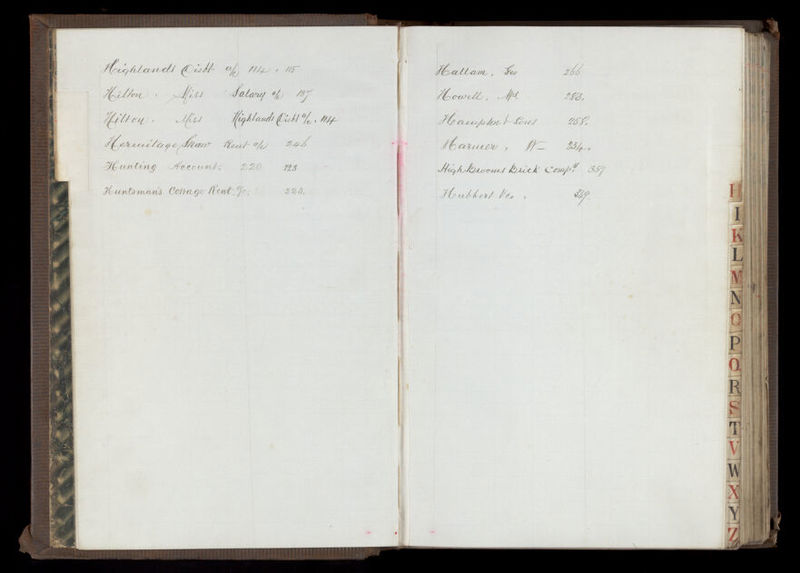 Highlands Distt a/c 114 . 115
Hilton . Miss Salary a/c 107
Hilton . Miss Highlands Distt a/c . 114
Hermitage Shaw Rent a/c 246
Hunting Account. 220 123
Huntsman's Cottage Rent
Hallam, Geo 266
Howell, Mrs
Hampton & Sons 258.
Harmer, W
High Brooms Brick Compy 357
H
I
K
L
M
N
O
P
Q
R
S
T
V
W
X
Y
Z